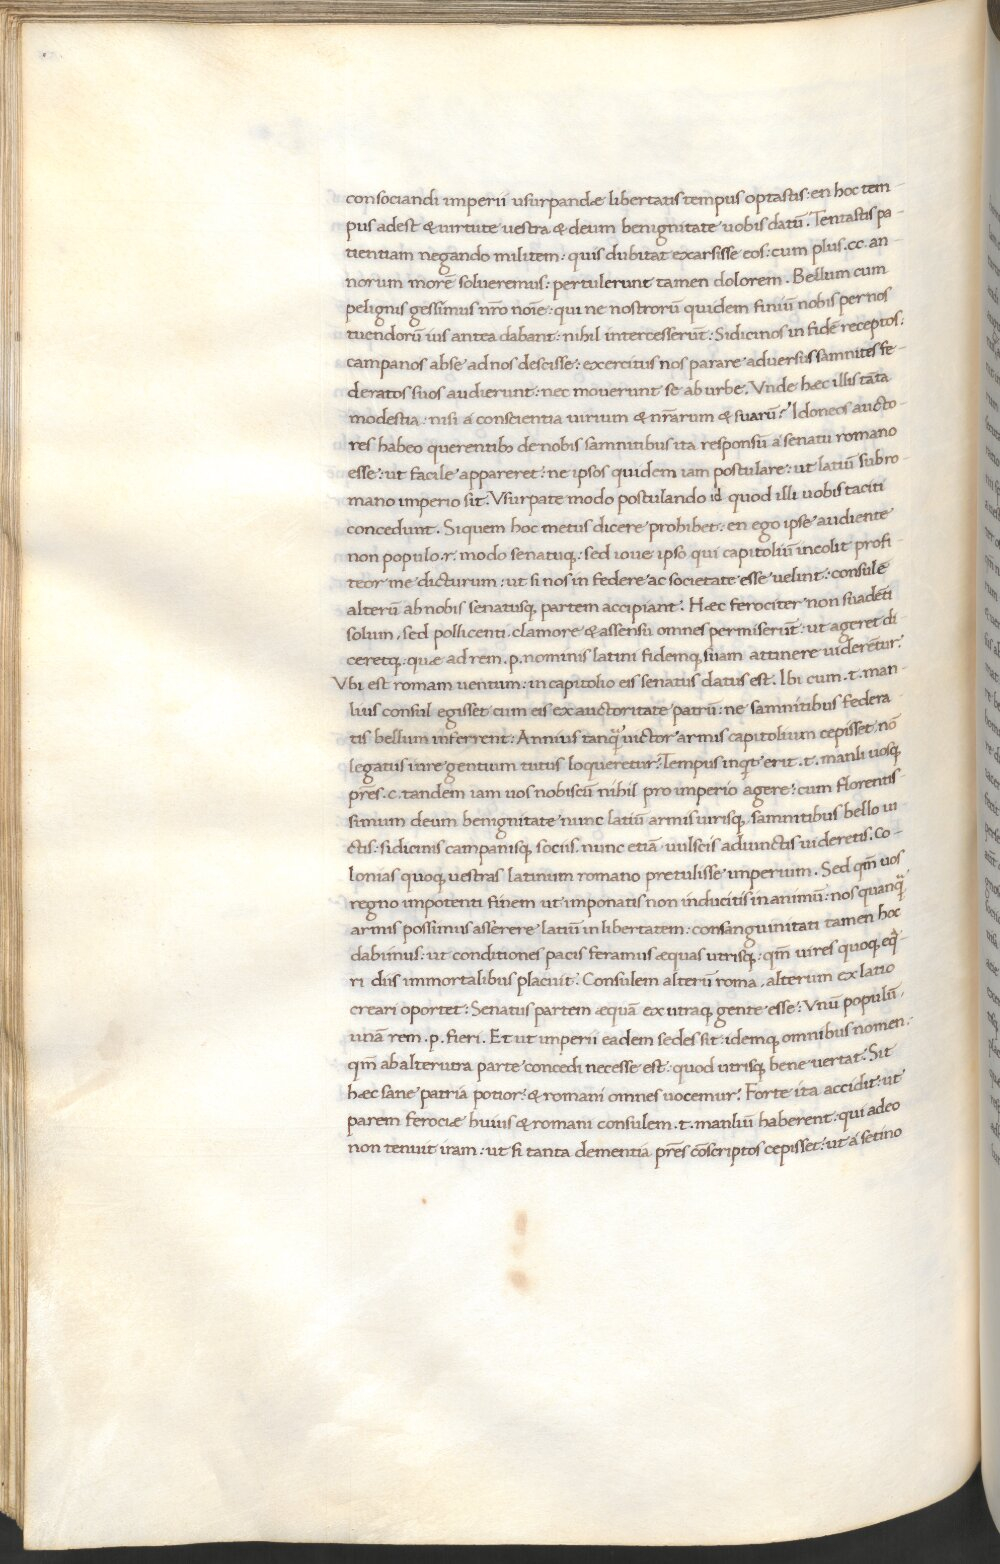 consociandi imperii usurpandæ libertatis tempus optastis: en hoc tem-
pus adest & uirtute uestra & deum benignitate uobis datū. Temtastis pa-
tientiam negando militem: quis dubitat exarsisse eos: cum plus .cc. an-
norum morē solueremus: pertulerunt tamen dolorem. Bellum cum
pelignis gessimus nr̄o noīe: qui ne nostrorū quidem finiū nobis per nos
tuendorū ius antea dabant: nihil intercesserūt: Sidicinos in fidē receptos:
campanos abse ad nos descisse: exercitus nos parare aduersus samnites fe-
deratos suos audierunt: nec mouerunt se ab urbe. Vnde hæc illis tāta
modestia: nisi a conscientia uirium & nr̄arum & suarū? Idoneos aucto-
res habeo querentibꝫ de nobis samnitibus ita responsū a senatu romano
esse: ut facile appareret: ne ipsos quidem iam postulare: ut latiū sub ro-
mano imperio sit. Vsurpate modo postulando id quod illi uobis taciti
concedunt. Siquem hoc metus dicere prohibet: en ego ipse audiente
non populo .r. modo senatuq; sed ioue ipso qui capitoliū incolit profi-
teor me dicturum: ut si nos in federe ac societate esse uelint: consulē
alterū ab nobis senatusq; partem accipiant. Hæc ferociter non suadēti
solum, sed pollicenti clamore & assensu omnes permiserūt: ut ageret di-
ceretq; quæ ad rem .p. nominis latini fidemq; suam attinere uiderētur.
Vbi est romam uentum: in capitolio eis senatus datus est. Ibi cum .t. man-
lius consul egisset cum eis ex auctoritate patrū: ne samnitibus federa-
tis bellum inferrent: Annius tanq̄ uictor armis capitolium cepisset nō
legatus iure gentium tutus loqueretur: Tempus inqt erit .t. manli uosq;
pr̄es .c. tandem iam uos nobiscū nihil pro imperio agere: cum florentis-
simum deum benignitate nunc latiū armis uirisq; samnitibus bello ui-
ctis: sidicinis campanisq; sociis, nunc etiā uulscis adiunctis uideretis. Co-
lonias quoq; uestras latinum romano pretulisse imperium. Sed qm̄ uos
regno impotenti finem ut imponatis non inducitis in animū: nos quanq̄
armis possimus asserere latiū in libertatem: consanguinitati tamen hoc
dabimus: ut conditiones pacis feramus æquas utrisq; qm̄ uires quoq; eq̄-
ri diis immortalibus placuit. Consulem alterū roma, alterum ex latio
creari oportet: Senatus partem æquā ex utraq; gente esse: Vnū populū,
unā rem .p. fieri. Et ut imperii eadem sedes sit: idemq; omnibus nomen.
qm̄ ab alterutra parte concedi necesse est: quod utrisq; bene uertat: Sit
hæc sane patria potior: & romani omnes uocemur. Forte ita accidit: ut
parem ferociæ huius & romani consulem .t. manliū haberent: qui adeo
non tenuit iram: ut si tanta dementia pr̄es cōscriptos cepisset: ut a setino